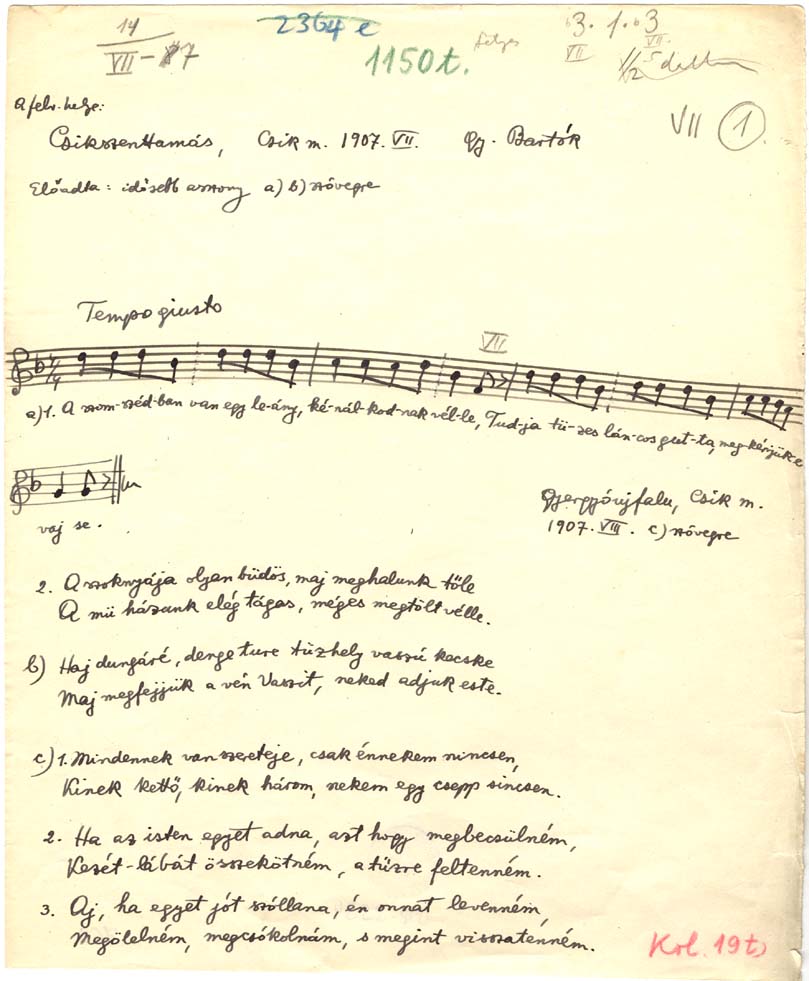 14
VII - 87
2364 e
1150 t.
3. 1. 3
VII
VII
1/2
VII 1.
A felv. helye:
Csikszenttamás, Csik m. 1907. VII. Gy. Bartók
Előadta: idősebb asszony a) b) szövegre
Tempo giusto
VII
a) 1. A szom-széd-ban van egy le-ány, ké-nál-kod-nak vél-le, Tud-ja tü-zes lán-cos gut-ta, meg-kérjük-e
vaj se.
Gyergyóujfalu, Csik m.
1907. VIII. c) szövegre
2. A szoknyája olyan büdös, maj meghalunk tőle
A mü házunk elég tágas, méges megtölt vélle.
b) Haj dungáré, denge ture tüzhely vaszú kecske
Maj megfejjük a vén Vaszit, neked adjuk este.
c) 1. Mindennek van szeretője, csak énnekem nincsen,
Kinek kettő, kinek három, nekem egy csepp sincsen.
2. Ha az isten egyet adna, azt hogy megbecsülném,
Kezét-lábát összekötném, a tüzre feltenném.
3. Aj, ha egyet jót szóllana, én onnat levenném,
Megölelném, megcsókolnám, s megint visszatenném.
Krl. 19 t)